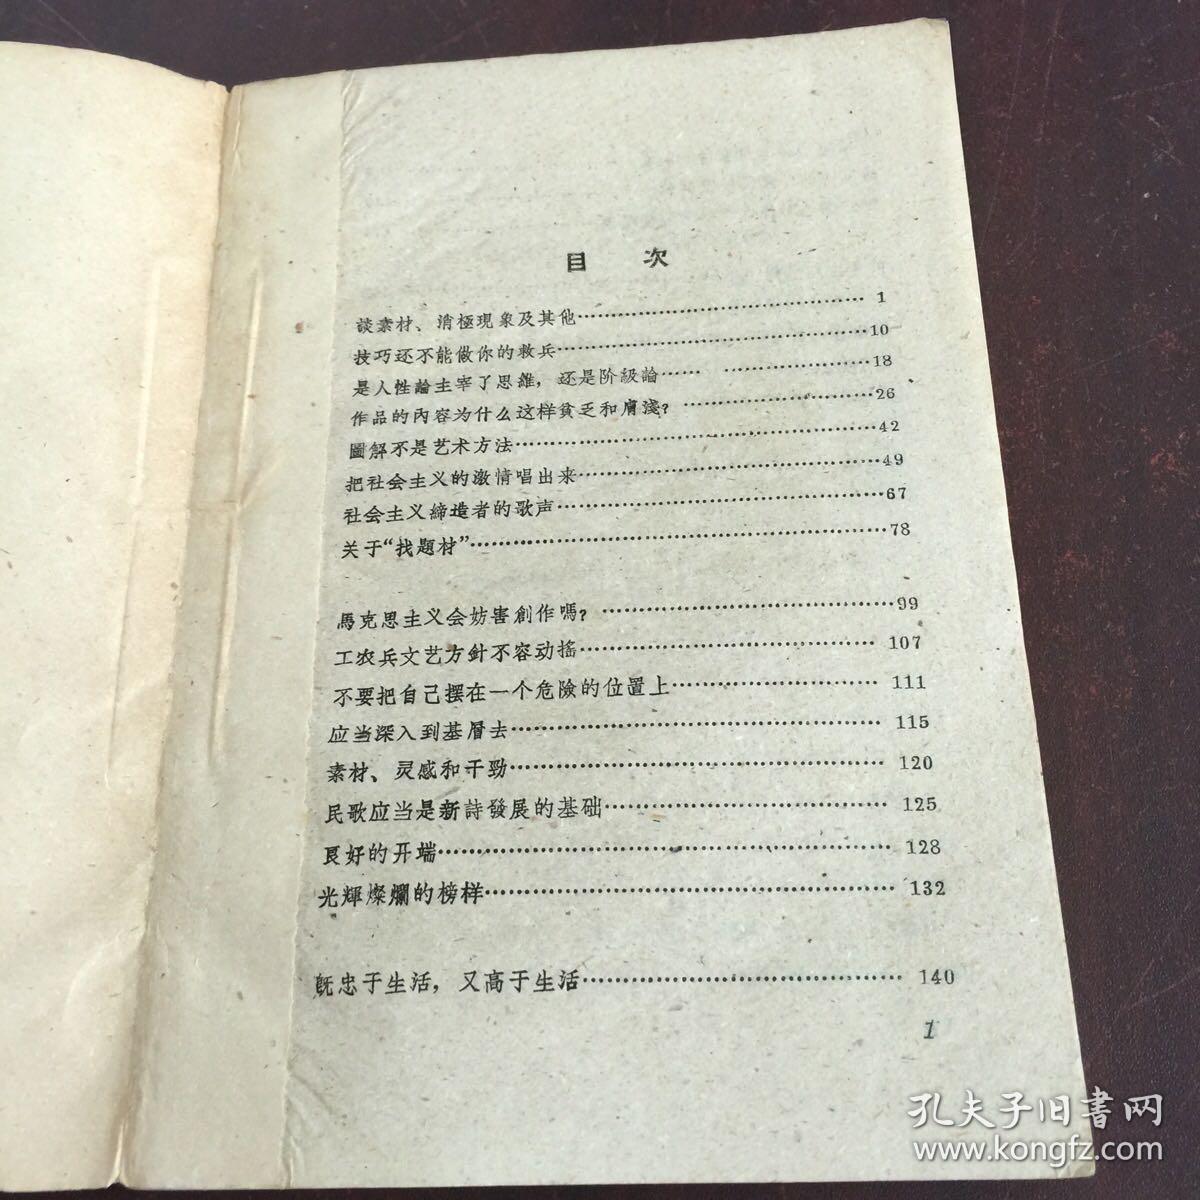 目 次
談素材、消極現象及其他……………………………………… 1
技巧还不能做你的救兵……………………………………… 10
是人性論主宰了思維，还是阶級論…… ……………… 18
作品的內容为什么这样貧乏和膚淺？……………………… 26
圖解不是艺术方法……………………………………… 42
把社会主义的激情唱出来……………………………… 49
社会主义締造者的歌声………………………………… 67
关于“找題材”………………………………………… 78
馬克思主义会妨害創作嗎？……………………………… 99
工农兵文艺方針不容动搖……………………………… 107
不要把自己摆在一个危險的位置上…………………… 111
应当深入到基層去……………………………………… 115
素材、灵感和干勁……………………………………… 120
民歌应当是新詩發展的基础…………………………… 125
良好的开端……………………………………………… 128
光輝燦爛的榜样………………………………………… 132
既忠于生活，又高于生活……………………………… 140
1
孔夫子旧書网
www.kongfz.com